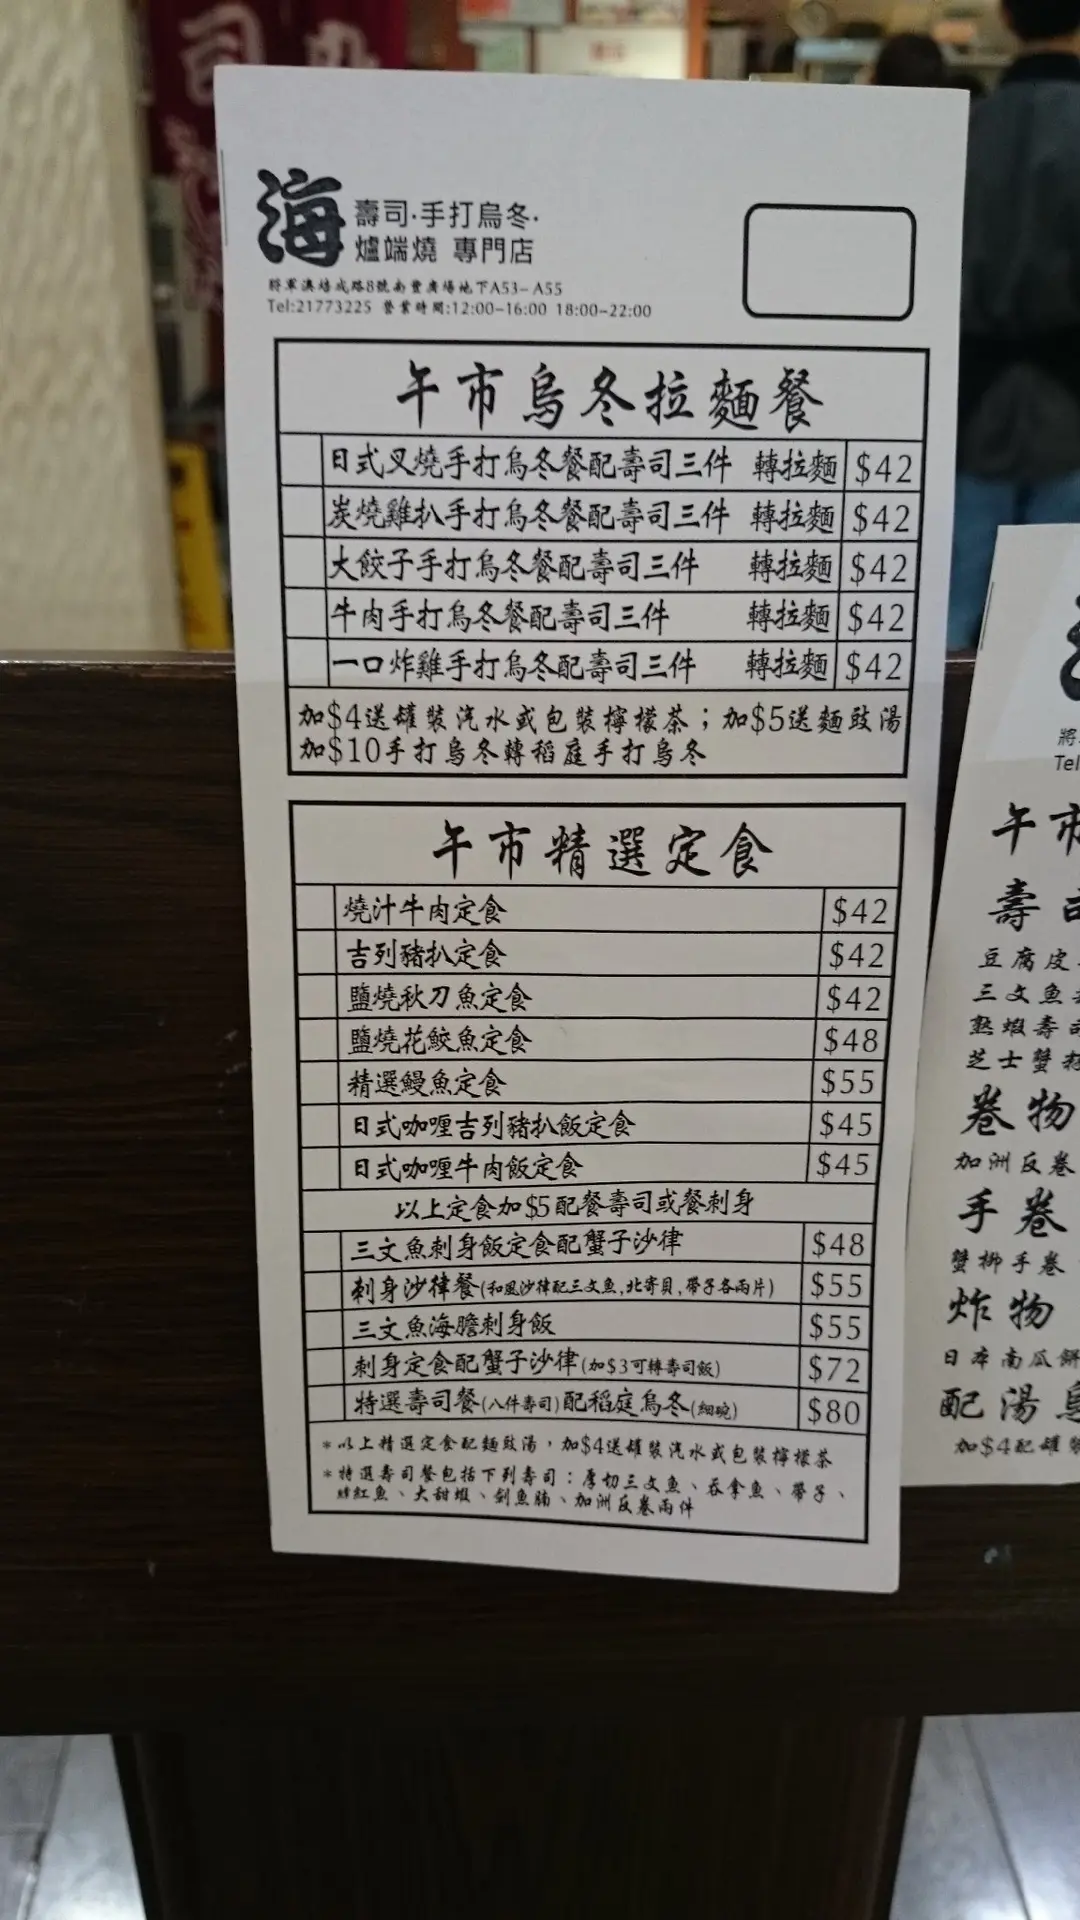 司
海
壽司·手打烏冬·
爐端燒 專門店
將軍澳培成路8號南豐廣場地下A53-A55
Tel:21773225 營業時間:12:00-16:00 18:00-22:00
午市烏冬拉麵餐
日式叉燒手打烏冬餐配壽司三件 轉拉麵 $42
炭燒雞扒手打烏冬餐配壽司三件 轉拉麵 $42
大餃子手打烏冬餐配壽司三件 轉拉麵 $42
牛肉手打烏冬餐配壽司三件 轉拉麵 $42
一口炸雞手打烏冬配壽司三件 轉拉麵 $42
加$4送罐裝汽水或包裝檸檬茶；加$5送麵豉湯
加$10手打烏冬轉稻庭手打烏冬
午市精選定食
燒汁牛肉定食 $42
吉列豬扒定食 $42
鹽燒秋刀魚定食 $42
鹽燒花鮫魚定食 $48
精選鰻魚定食 $55
日式咖喱吉列豬扒飯定食 $45
日式咖喱牛肉飯定食 $45
以上定食加$5配餐壽司或餐刺身
三文魚刺身飯定食配蟹子沙律 $48
刺身沙律餐(和風沙律配三文魚,北寄貝,帶子各兩片) $55
三文魚海膽刺身飯 $55
刺身定食配蟹子沙律(加$3可轉壽司飯) $72
特選壽司餐(八件壽司)配稻庭烏冬(細碗) $80
*以上精選定食配麵豉湯，加$4送罐裝汽水或包裝檸檬茶
*特選壽司餐包括下列壽司：厚切三文魚、吞拿魚、帶子、
紅魚、大甜蝦、劍魚腩、加洲反卷兩件
將
Tel
午市
壽司
豆腐皮
三文魚
熟蝦壽司
芝士蟹
卷物
加洲反卷
手卷
蟹柳手卷
炸物
日本南瓜餅
配湯烏
加$4配罐裝